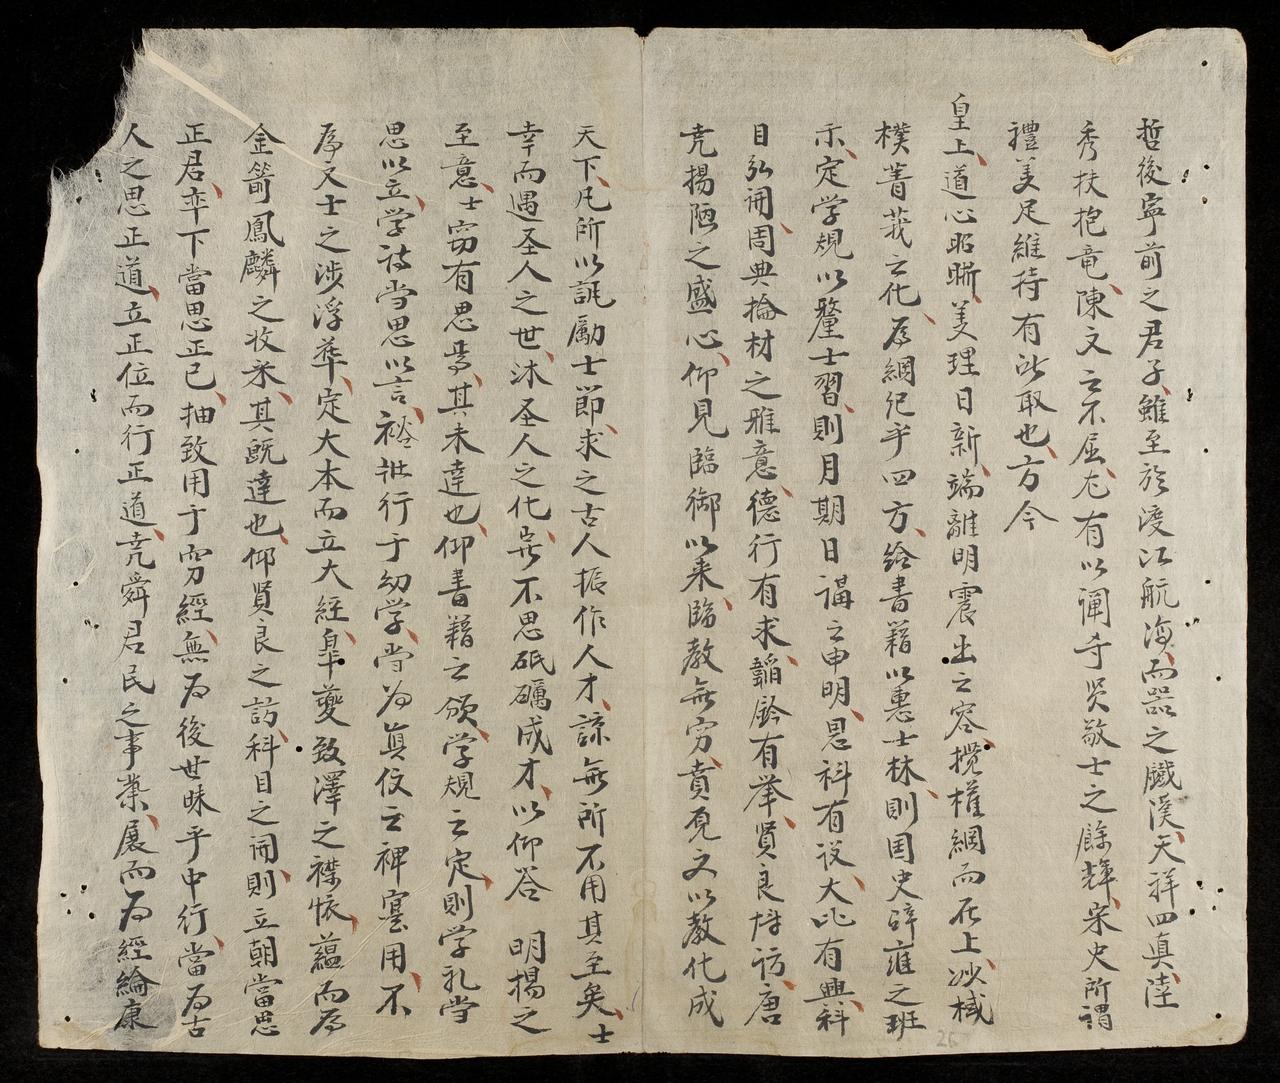 哲後寧前之君子雖至於渡江航海而器之鐵漢天祥四真陸
秀扶抱竜陳文之不屈尤有以闡寺贤敬士之餘輝宋史所謂
禮美足維持有以取也方今
皇上道心昭晰美理日新端離明震出之容攬權綱而在上沙棫
樸菁莪之化為綱纪乎四方給書籍以惠士林則国史辟雍之班
示定学規以釐士習則月期日講之申明思科有设大比有興科
目弘開周典掄材之雅意德行有求韜鈐有举贤良時訪唐
尭揚陋之盛心仰見臨御以来臨教無穷賁見文以教化成
天下凡所以諷勵士節求之古人振作人才諒無所不用其至矣士
幸而遇圣人之世沐圣人之化㒺不思砥礪成才以仰答 明揚之
至意士窃有思焉其未達也仰書籍之頒学規之定則学礼尝
思以立学诗尝思以言 批行于幼学尝为真佼之裨寔用不
為文士之涉浮華定大本而立大経皐夔致澤之襟懐蘊而為
金箭鳳麟之收采其既達也仰贤良之訪科目之開則立朝當思
正君率下當思正己抽致用于穷經無为後世昧乎中行當为古
人之思正道立正位而行正道尭舜君民之事業展而为經綸康